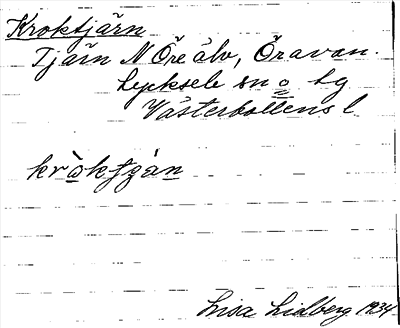 Kroktjärn
Tjärn N Öre älv, Öravan.
Lycksele sn o lg
Västerbottens l
kròktzá̈n
Lisa Lidberg 1934